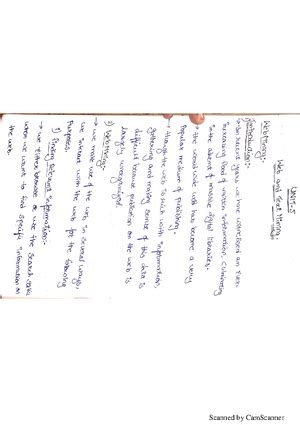 UNIT-5
Web and Text Mining
Web Mining:-
Introduction:-
In recent years we have witnessed an ever
increasing flood of written information, culminating
in the advent of massive digital libraries.
→ the world wide web has become a very
popular medium of publishing.
→ though the web is rich with information,
gathering and making sense of this data is
difficult because publication on the web is
largely unorganized.
→ we make use of the web in several ways,
we interact with the web for the following
Purposes.
1) Finding Relevant Information:-
→ we either browse or use the search
when we want to find specific information on
the web.
Scanned by CamScanner